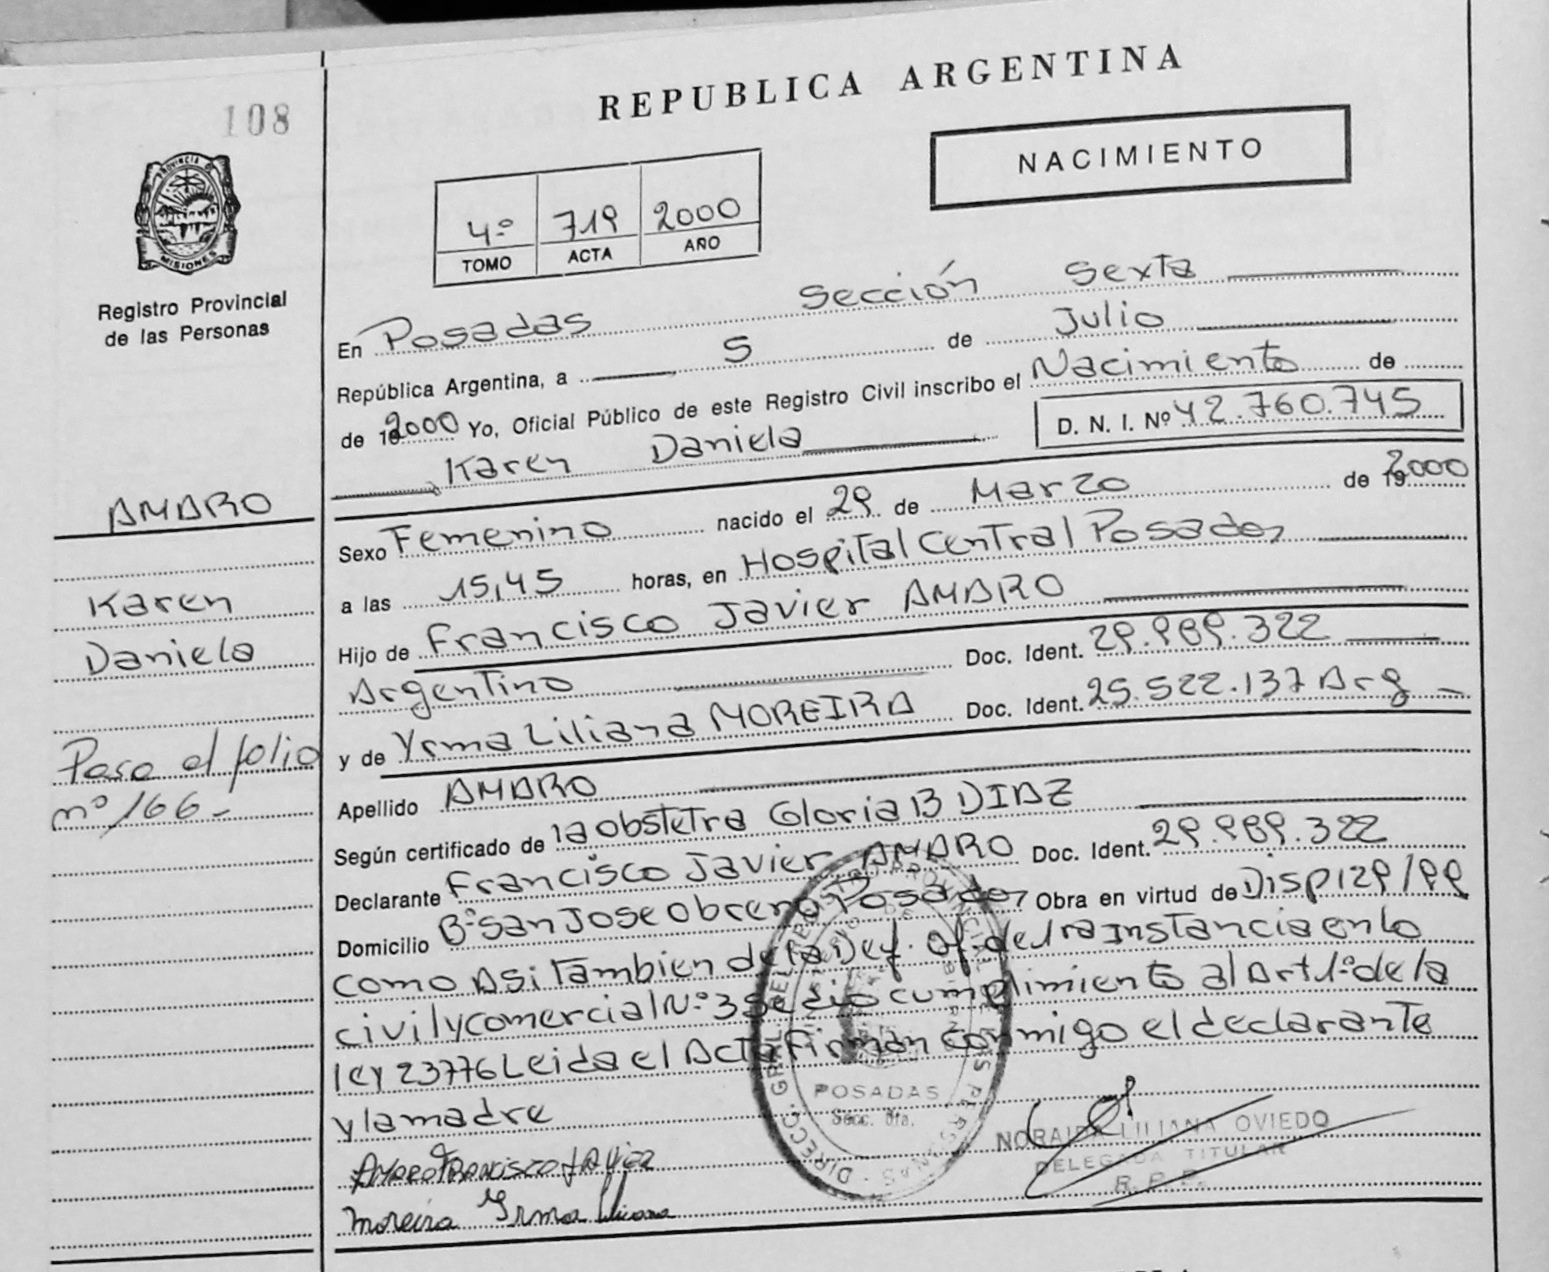 108
REPUBLICA ARGENTINA
NACIMIENTO
PROVINCIA DE
MISIONES
Registro Provincial
de las Personas
4º 719 2000
TOMO ACTA AÑO
En Posadas Sección Sexta
República Argentina, a 5 de Julio
de 2000 Yo, Oficial Público de este Registro Civil inscribo el Nacimiento de
Karen Daniela D. N. I. Nº 42.760.745
AMARO
Karen
Daniela
Paso al folio
nº 166.-
Sexo Femenino nacido el 29 de Marzo de 2000
a las 15,45 horas, en Hospital Central Posadas
Hijo de Francisco Javier AMARO
Argentino Doc. Ident. 29.989.322
y de Yrma Liliana MOREIRA Doc. Ident. 25.522.137 Arg
Apellido AMARO
Según certificado de la obstetra Gloria B DIAZ
Declarante Francisco Javier AMARO Doc. Ident. 29.989.322
Domicilio Bº San Jose Obrero Posadas Obra en virtud de Disp 129/99
como Asi Tambien de la Def. Of. de 1ra Instancia en lo
civil y comercial Nº 3 se dio cumplimiento al Art 1º de la
ley 23776 Leida el Acta Firman conmigo el declarante
y la madre
AMARO FRANCISCO JAVIER
Moreira Yrma Liliana
POSADAS
Secc. 6ta.
NORAIDA LILIANA OVIEDO
DELEGADA TITULAR
R. P. P.